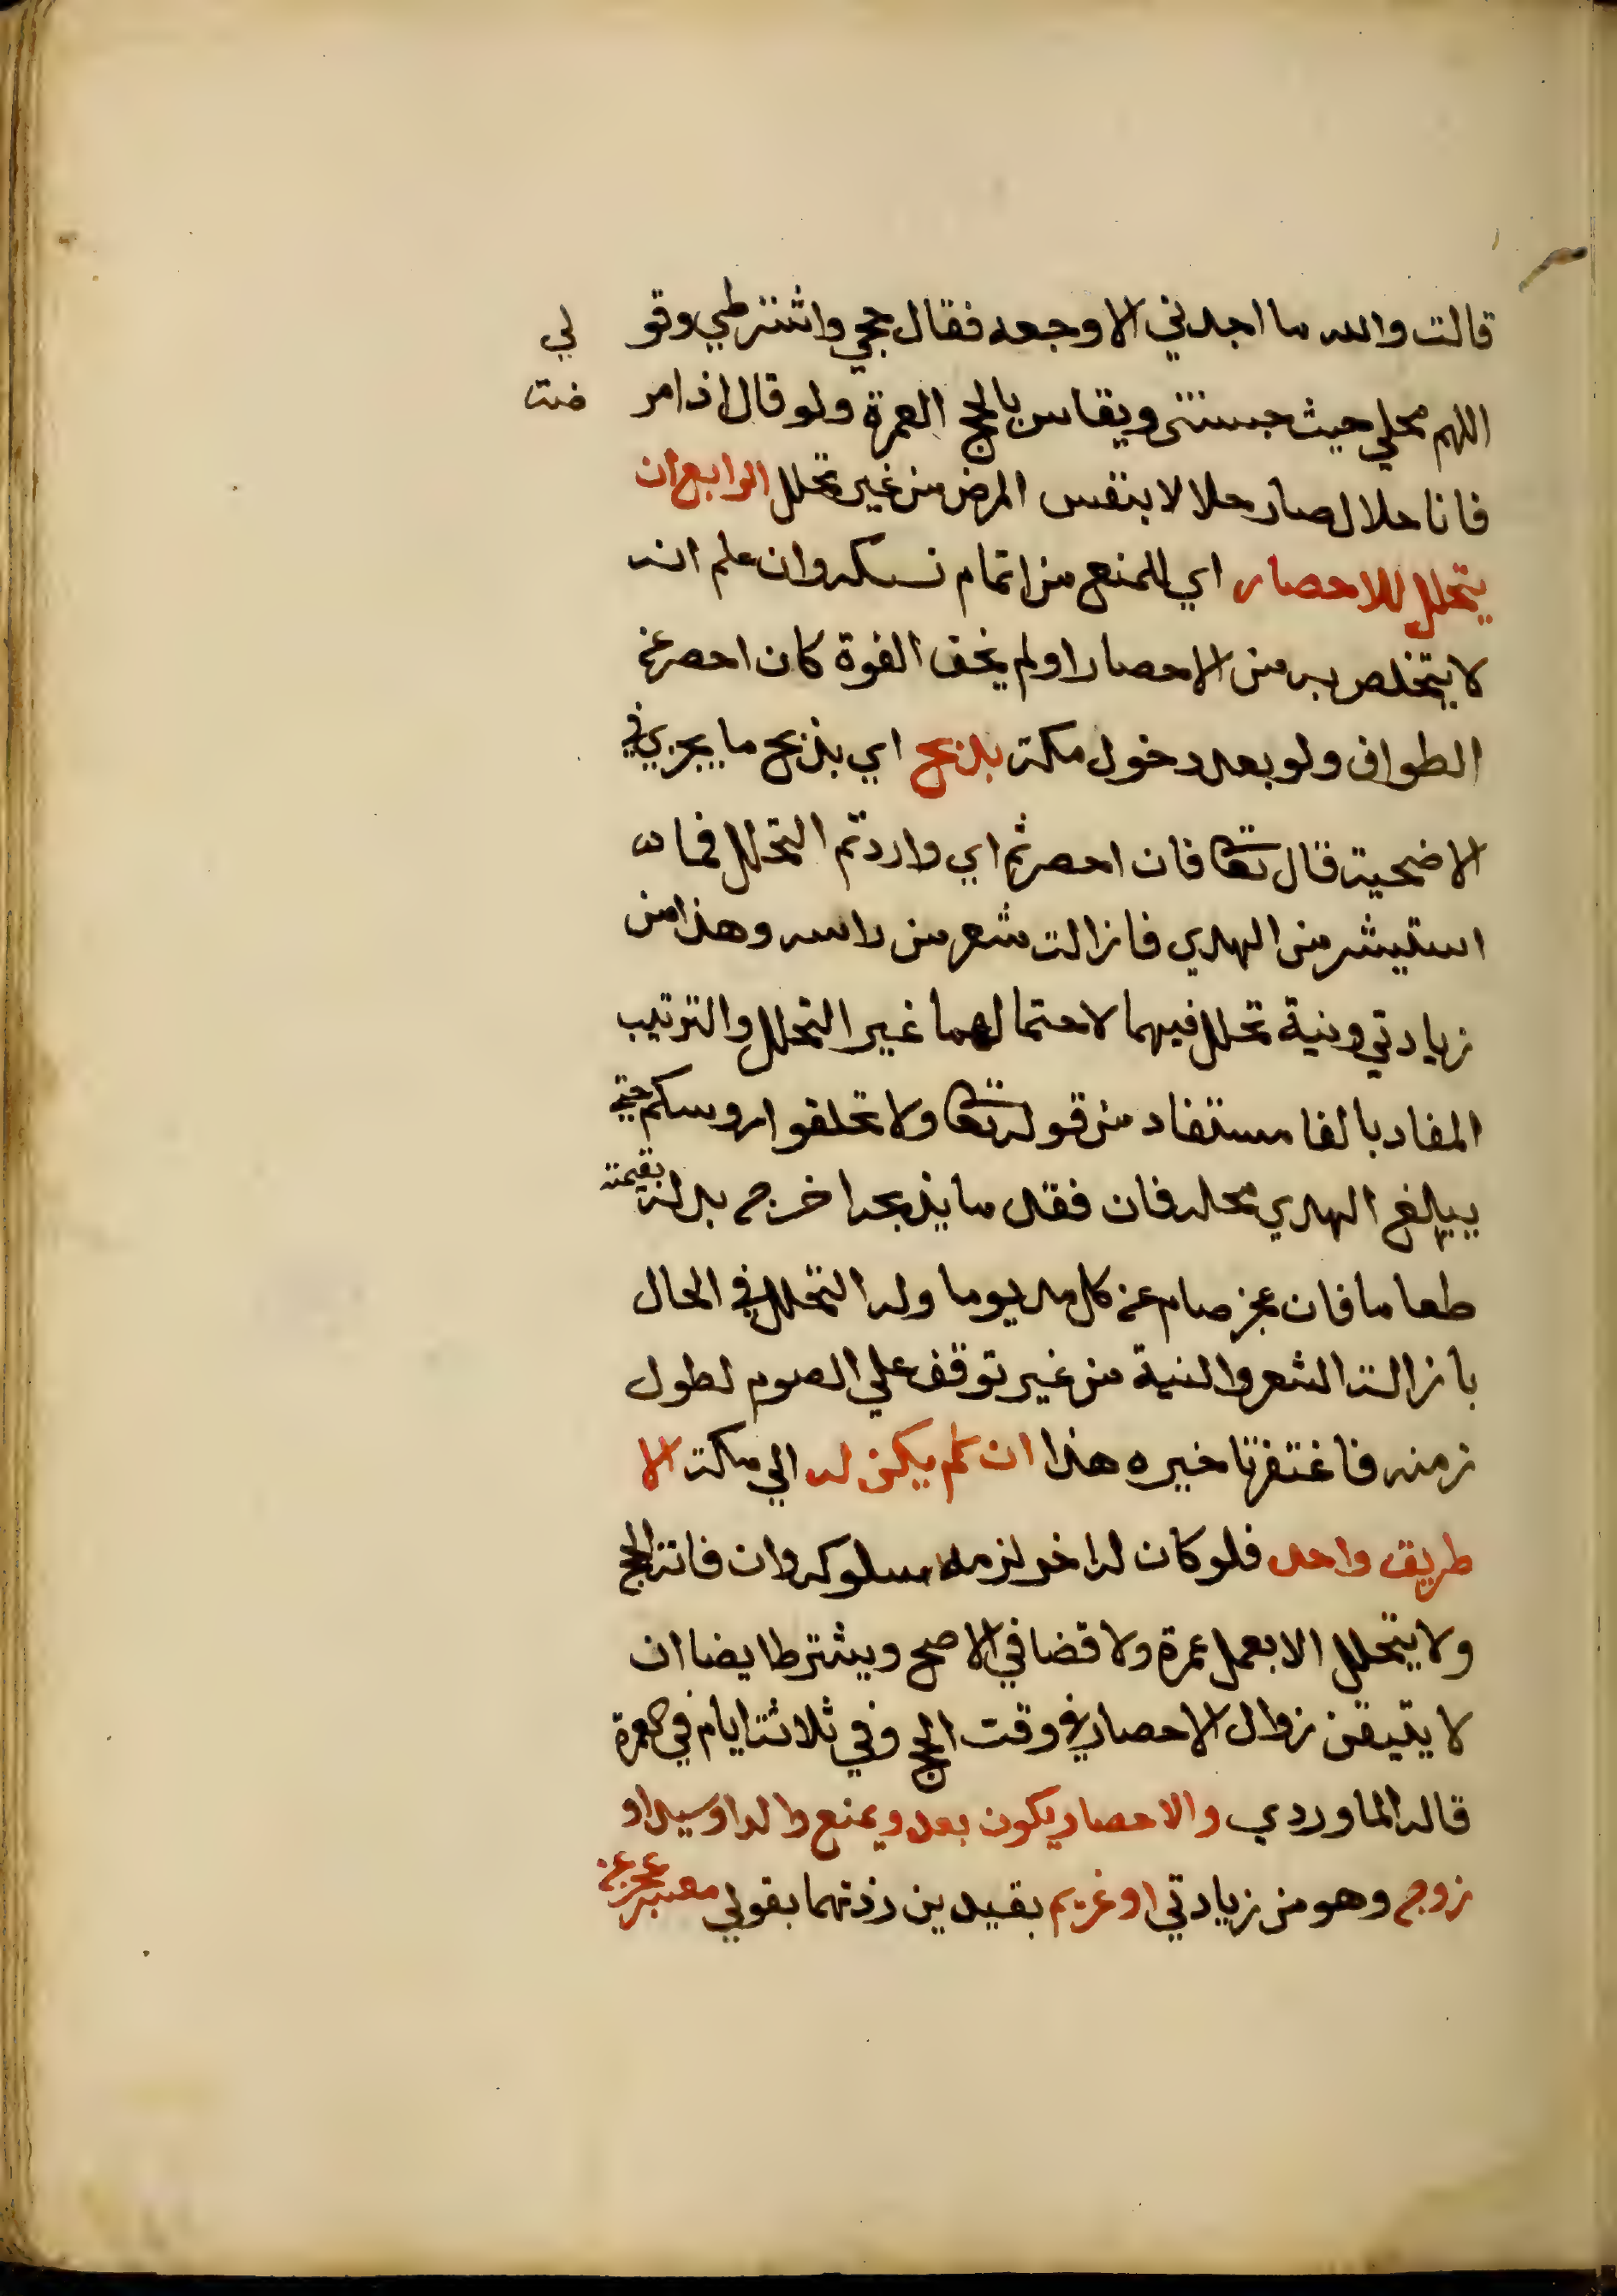 قالت والله ما اجدني الا وجعه فقال حجي واشترطي وقو لي
اللهم محلي حيث حبستني ويقاس بالحج العمرة ولو قال اذا مر ضت
فانا حلال صار حلالا بنفس المرض من غير تحلل الرابع ان
يتحلل للاحصار اي للمنع من اتمام نسكه وان علم انه
لا يتخلص به من الاحصار او لم يخف الفوة كان احصر عن
الطواف ولو بعد دخول مكة بذبح اي بذبح ما يجزي في
الاضحية قال تعا فان احصرتم اي واردتم التحلل فما
استيسر من الهدي فازالت شعر من راسه وهذا من
زيادتي ونية تحلل فيهما لاحتمالهما غير التحلل والترتيب
المفاد بالفا مستفاد من قوله تعا ولا تحلقوا روسكم حتي
يبلغ الهدي محله فان فقد ما يذبحه اخرج بدله بقيمته
طعاما فان عجز صام عن كل مد يوما وله التحلل في الحال
بازالة الشعر والنية من غير توقف علي الصوم لطول
زمنه فاغتفر تاخيره هذا ان لم يكن له الي مكة الا
طريق واحد فلو كان له اخر لزمه سلوكه وان فاته الحج
ولا يتحلل الا بعمل عمرة ولا قضا في الاصح ويشترط ايضا ان
لا يتيقن زوال الاحصار في وقت الحج وفي ثلاثة ايام في العمرة
قاله الماوردي والاحصار يكون بعدو يمنع والد او سيد او
زوج وهو من زيادتي او غريم بقيدين زدتهما بقولي معسر عجز عن